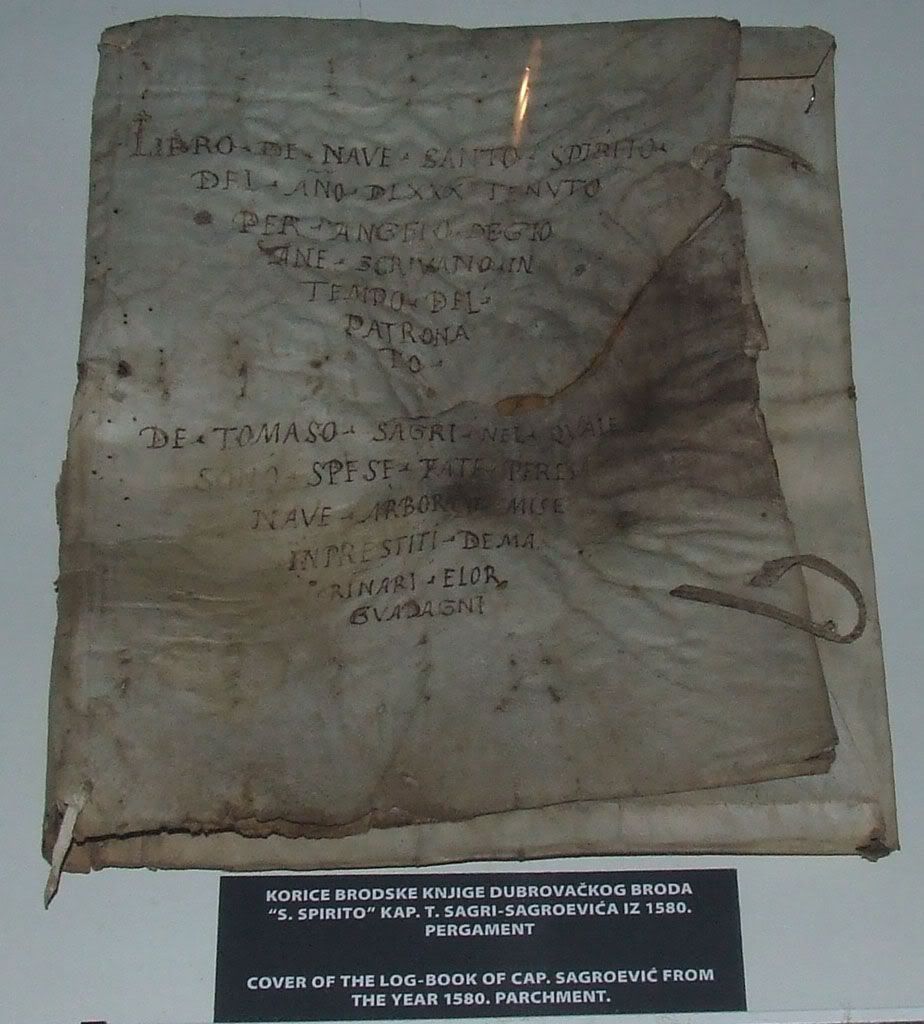 LIBRO · DE · NAVE · SANTO · SPIRITO ·
DEL · AÑO · DLXXX TENVTO
PER · ANGELO · DEGIO
ANE · SCRIVANO · IN
TEMPO · DEL ·
PATRONA
TO ·
DE · TOMASO · SAGRI · NEL · QVALE
SONO · SPESE · FATE
NAVE
INPRESTITI · DEMA
RINARI · ELOR
GVADAGNI
KORICE BRODSKE KNJIGE DUBROVAČKOG BRODA
“S. SPIRITO” KAP. T. SAGRI-SAGROEVIĆA IZ 1580.
PERGAMENT
COVER OF THE LOG-BOOK OF CAP. SAGROEVIĆ FROM
THE YEAR 1580. PARCHMENT.